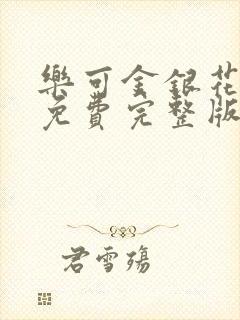 樂可金銀花
免費完整版
君雪殤